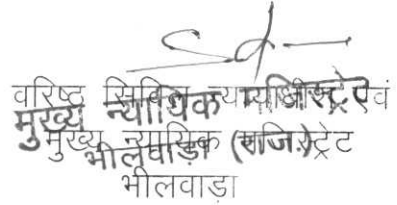 Sd-
वरिष्ठ सिविल न्यायाधीश एवं
मुख्य न्यायिक मजिस्ट्रेट
मुख्य न्यायिक मजिस्ट्रेट
भीलवाड़ा (राज.)
भीलवाड़ा